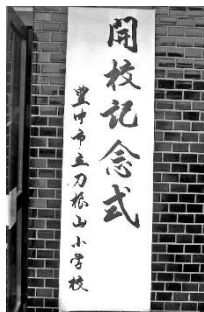 開校記念式
豊中市立刀根山小学校